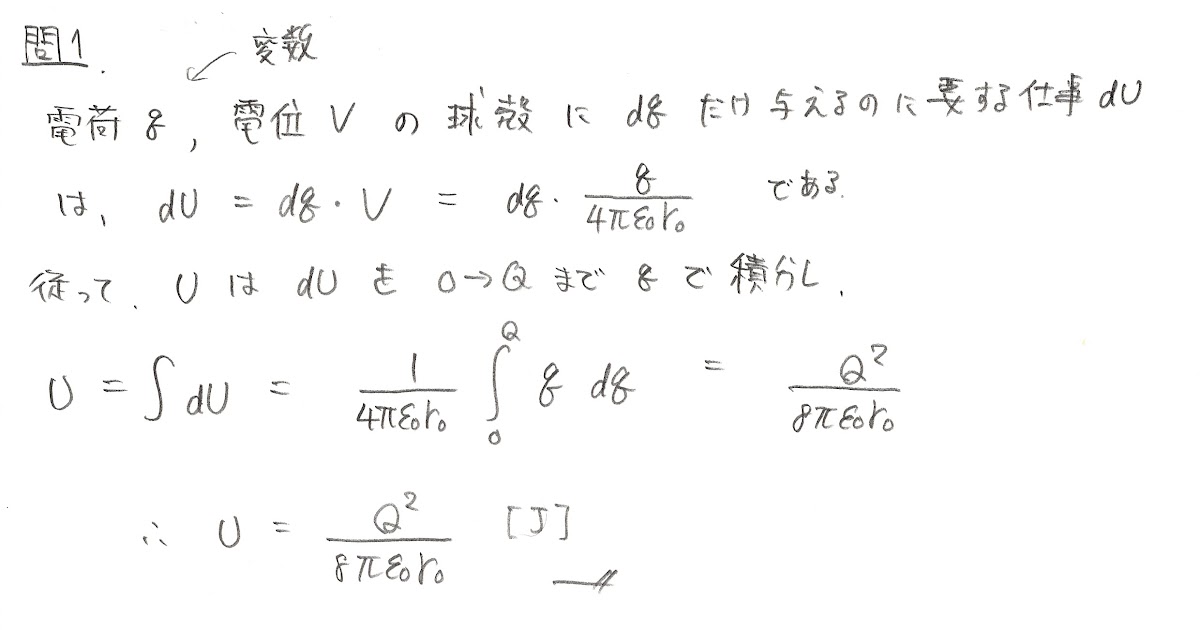 問1.
← 変数
電荷 q , 電位 V の 球殻 に dq だけ 与えるのに要する仕事 dU
は、 dU = dq・V = dq・q/4πε₀r₀ である.
従って. U は dU を 0→Q まで q で 積分し.
U = ∫dU = 1/4πε₀r₀ ∫₀^Q q dq = Q²/8πε₀r₀
∴ U = Q²/8πε₀r₀ [J]